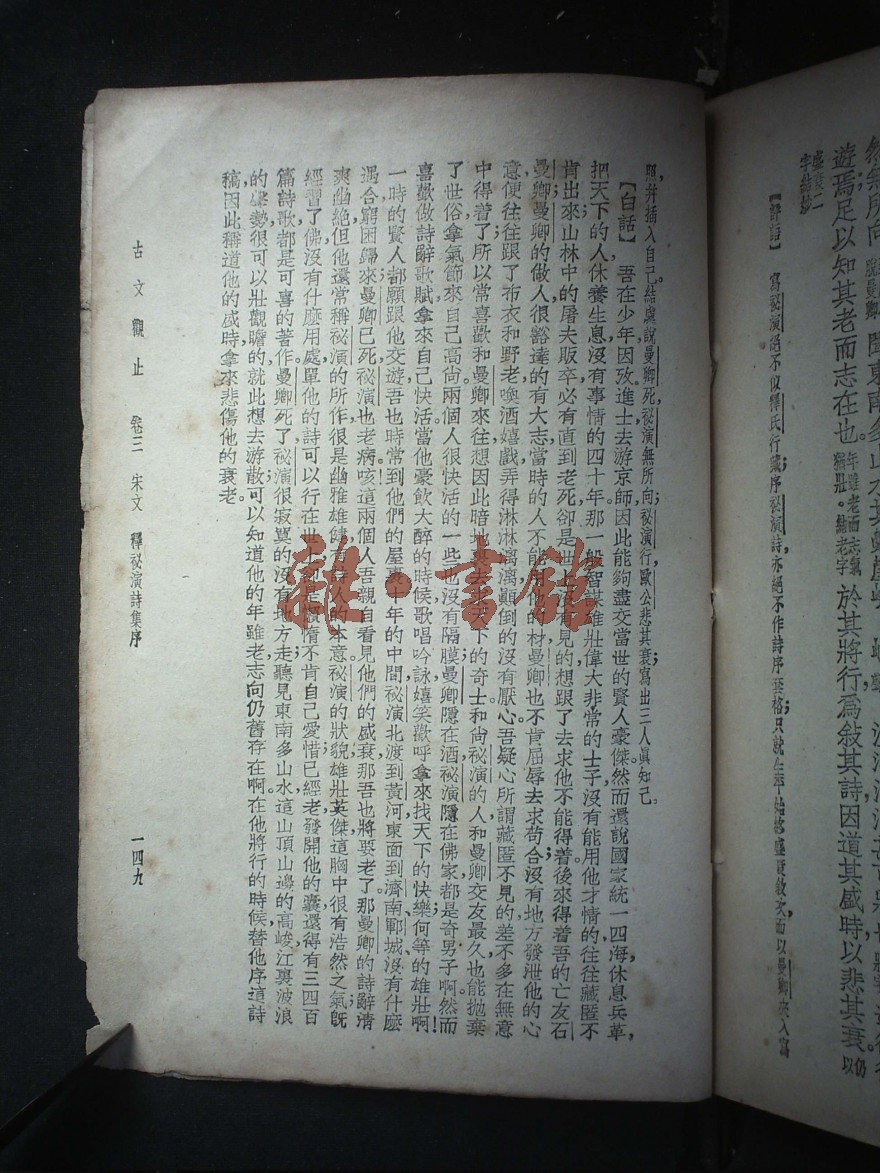 然無所向
遊焉足以知其老而志在也年雖老而志氣猶壯結老字於其將行爲敍其詩因道其盛時以悲其衰仍以
盛衰二字結妙
寫秘演絕不似釋氏行藏序秘演詩亦絕不作詩序套格只就生平始終盛衰敍次而以曼卿夾入寫
照并插入自己結處說曼卿死秘演無所向秘演行歐公悲其衰寫出三人眞知己。
【白話】吾在少年因攷進士去游京師因此能夠盡交當世的賢人豪傑然而還說國家統一四海休息兵革
把天下的人休養生息沒有事情的四十年那一般智謀雄壯偉大非常的士子沒有能用他才情的往往藏匿不
肯出來山林中的屠夫販卒必有直到老死卻是世上
見的想跟了去求他不能得着後來得着吾的亡友石
曼卿曼卿的做人很豁達的有大志當時的人不能用他的材曼卿也不肯屈辱去求苟合沒有地方發泄他的心
意便往往跟了布衣和野老喚酒嬉戲弄得淋淋漓漓顚倒的沒有厭心吾疑心所謂藏匿不見的差不多在無意
中得着了所以常喜歡和曼卿來往想因此暗地裏去
天下的奇士和尙祕演的人和曼卿交友最久也能拋棄
了世俗拿氣節來自己高尙兩個人很快活的一些也沒有隔膜曼卿隱在酒祕演隱在佛家都是奇男子啊然而
喜歡做詩辭歌賦拿來自己快活當他豪飲大醉的時候歌唱吟詠嬉笑歡呼拿來找天下的快樂何等的雄壯啊
一時的賢人都願跟他交遊吾也時常到他們的屋裏十年的中間祕演北渡到黃河東面到濟南鄆城沒有什麽
遇合窮困歸來曼卿已死祕演也老病咳這兩個人吾親自看見他們的盛衰那吾也將要老了那曼卿的詩辭清
爽幽絕但他還常稱祕演的所作很是幽雅雄健有詩人的本意祕演的狀貌雄壯英傑這胸中很有浩然之氣旣
經習了佛沒有什麽用處單他的詩可以行在世上
懶惰不肯自己愛惜已經老發開他的囊還得有三四百
篇詩歌都是可喜的著作曼卿死了祕演很寂寞的沒有地方走聽見東南多山水這山頂山邊的高峻江裏波浪
的
勢很可以壯觀瞻的就此想去游散可以知道他的年雖老志向仍舊存在啊在他將行的時候替他序這詩
稿因此稱道他的盛時拿來悲傷他的衰老。
古文觀止　卷三　宋文　釋祕演詩集序　一四九
雜·書館